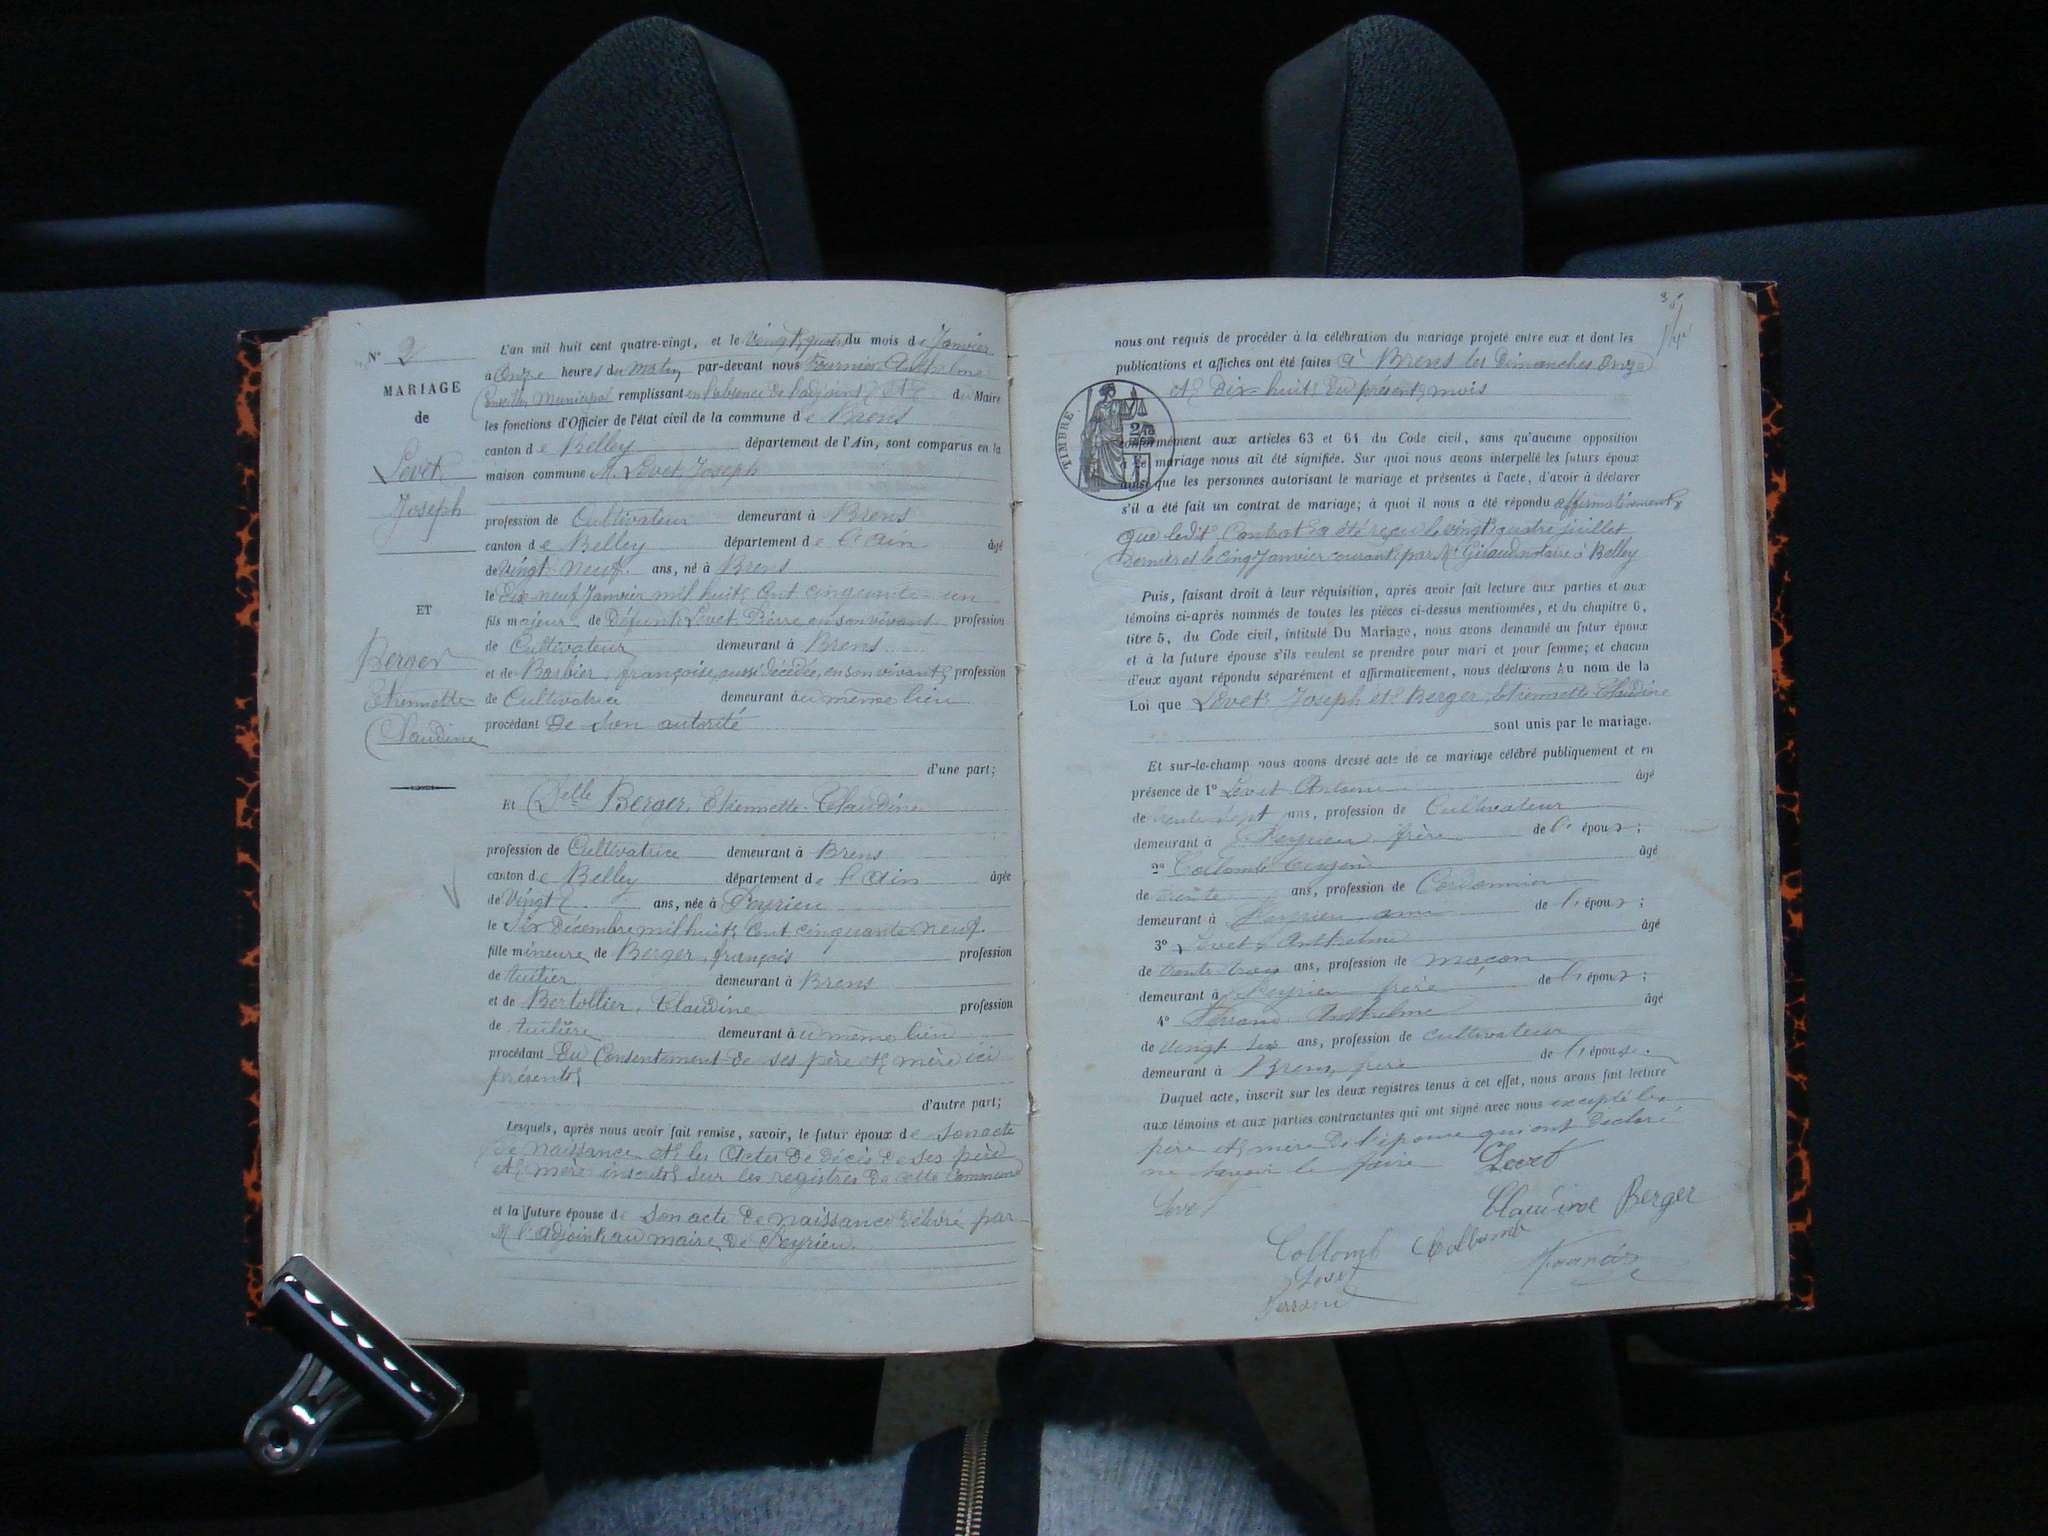 N° 2
MARIAGE
de
Levet
Joseph
ET
Berger
Etiennette
Claudine
L'an mil huit cent quatre-vingt, et le vingt quatre du mois de Janvier
à onze heures du matin par-devant nous Fournier Anthelme
Conseiller Municipal remplissant en l'absence de l'adjoint et du Maire
les fonctions d'Officier de l'état civil de la commune de Brens
canton de Belley département de l'Ain, sont comparus en la
maison commune M. Levet Joseph
profession de Cultivateur demeurant à Brens
canton de Belley département de l'Ain âgé
de vingt-neuf ans, né à Brens
le dix neuf Janvier mil huit cent cinquante-un
fils majeur de Défunt Levet Pierre en son vivant profession
de Cultivateur demeurant à Brens
et de Barbier françoise, aussi décédée, en son vivant profession
de Cultivatrice demeurant au même lieu
procédant de son autorité
d'une part;
Et Delle Berger, Etiennette-Claudine
profession de Cultivatrice demeurant à Brens
canton de Belley département de l'Ain âgée
de vingt ans, née à Peyrieu
le six Décembre mil huit cent cinquante neuf
fille mineure de Berger, françois profession
de tuilier demeurant à Brens
et de Bertollier, Claudine profession
de tuilière demeurant au même lieu
procédant du consentement de ses père et mère ici
présents
d'autre part;
Lesquels, après nous avoir fait remise, savoir, le futur époux de son acte
de naissance et les actes de décès de ses père
et mère inscrits sur les registres de cette commune
et la future épouse de son acte de naissance délivré par
M. l'adjoint au maire de Peyrieu.
nous ont requis de procéder à la célébration du mariage projeté entre eux et dont les
publications et affiches ont été faites à Brens les Dimanches onze
et dix-huit du présent mois
TIMBRE
conformément aux articles 63 et 64 du Code civil, sans qu'aucune opposition
à ce mariage nous ait été signifiée. Sur quoi nous avons interpellé les futurs époux
ainsi que les personnes autorisant le mariage et présentes à l'acte, d'avoir à déclarer
s'il a été fait un contrat de mariage; à quoi il nous a été répondu affirmativement
que ledit Contrat a été reçu le vingt quatre juillet
dernier et le cinq Janvier courant par Me Giraud notaire à Belley
Puis, faisant droit à leur réquisition, après avoir fait lecture aux parties et aux
témoins ci-après nommés de toutes les pièces ci-dessus mentionnées, et du chapitre 6,
titre 5, du Code civil, intitulé Du Mariage, nous avons demandé au futur époux
et à la future épouse s'ils veulent se prendre pour mari et pour femme; et chacun
d'eux ayant répondu séparément et affirmativement, nous déclarons Au nom de la
Loi que Levet Joseph et Berger, Etiennette Claudine
sont unis par le mariage.
Et sur-le-champ nous avons dressé acte de ce mariage célébré publiquement et en
présence de 1° Levet Antoine âgé
de trente sept ans, profession de Cultivateur
demeurant à Peyrieu frère de l'époux;
2° Collomb Eugène âgé
de trente ans, profession de Cordonnier
demeurant à Peyrieu ami de l'époux;
3° Levet Anthelme âgé
de trente-trois ans, profession de maçon
demeurant à Peyrieu frère de l'époux;
4° Ferrand Anthelme âgé
de vingt six ans, profession de cultivateur
demeurant à Brens, de l'épouse.
Duquel acte, inscrit sur les deux registres tenus à cet effet, nous avons fait lecture
aux témoins et aux parties contractantes qui ont signé avec nous excepté les
père et mère de l'épouse qui ont déclaré
ne savoir le faire Levet
Levet
Claudine Berger
Collomb Collomb
Levet Fournier
Ferrand